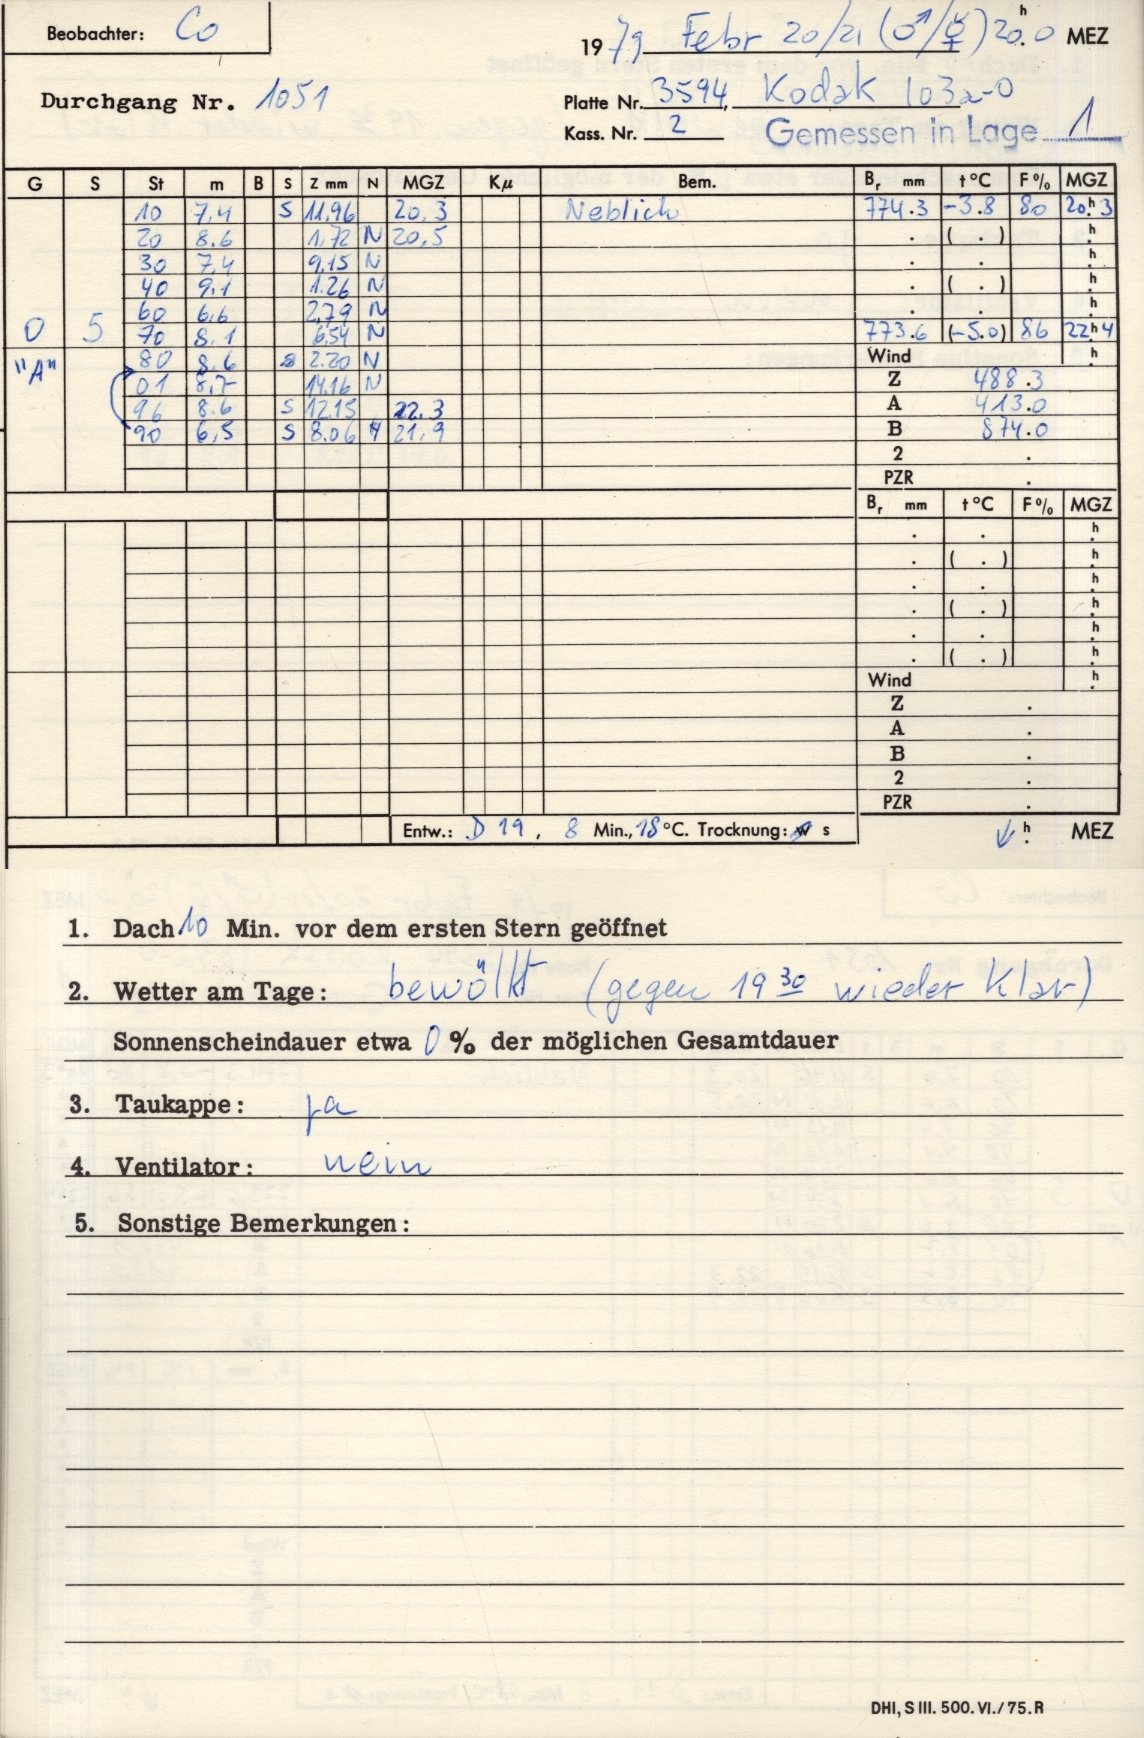 Beobachter: Co
1979 Febr 20/21 (♂/☿) 20ʰ.0 MEZ
Durchgang Nr. 1051
Platte Nr. 3594, Kodak 103a-O
Kass. Nr. 2 Gemessen in Lage 1
G S St m B S Z mm N MGZ Kμ Bem. Bᵣ mm t °C F % MGZ
10 7.4 S 11.96 20.3 Neblich 774.3 -3.8 80 20ʰ.3
20 8.6 1.72 N 20.5 . ( . ) ʰ.
30 7.4 9.15 N . . ʰ.
40 9.1 1.26 N . ( . ) ʰ.
60 6.6 2.79 N . . ʰ.
0 5 70 8.1 6.54 N 773.6 (-5.0) 86 22ʰ.4
"A" 80 8.6 s 2.20 N Wind ʰ.
01 8.7 14.16 N Z 488.3
96 8.6 S 12.15 22.3 A 413.0
90 6.5 S 8.06 21.9 B 874.0
2 .
PZR .
Bᵣ mm t °C F % MGZ
. . ʰ.
. ( . ) ʰ.
. . ʰ.
. ( . ) ʰ.
. . ʰ.
. ( . ) ʰ.
Wind ʰ.
Z .
A .
B .
2 .
PZR .
Entw.: D 19, 8 Min., 18 °C. Trocknung: w s ↓ ʰ. MEZ
1. Dach 10 Min. vor dem ersten Stern geöffnet
2. Wetter am Tage: bewölkt (gegen 19 30 wieder klar)
Sonnenscheindauer etwa 0 % der möglichen Gesamtdauer
3. Taukappe: ja
4. Ventilator: nein
5. Sonstige Bemerkungen:
DHI, S III. 500. VI./ 75. R